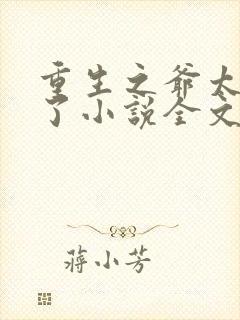 重生之爷太
了小说全文
蒋小芳